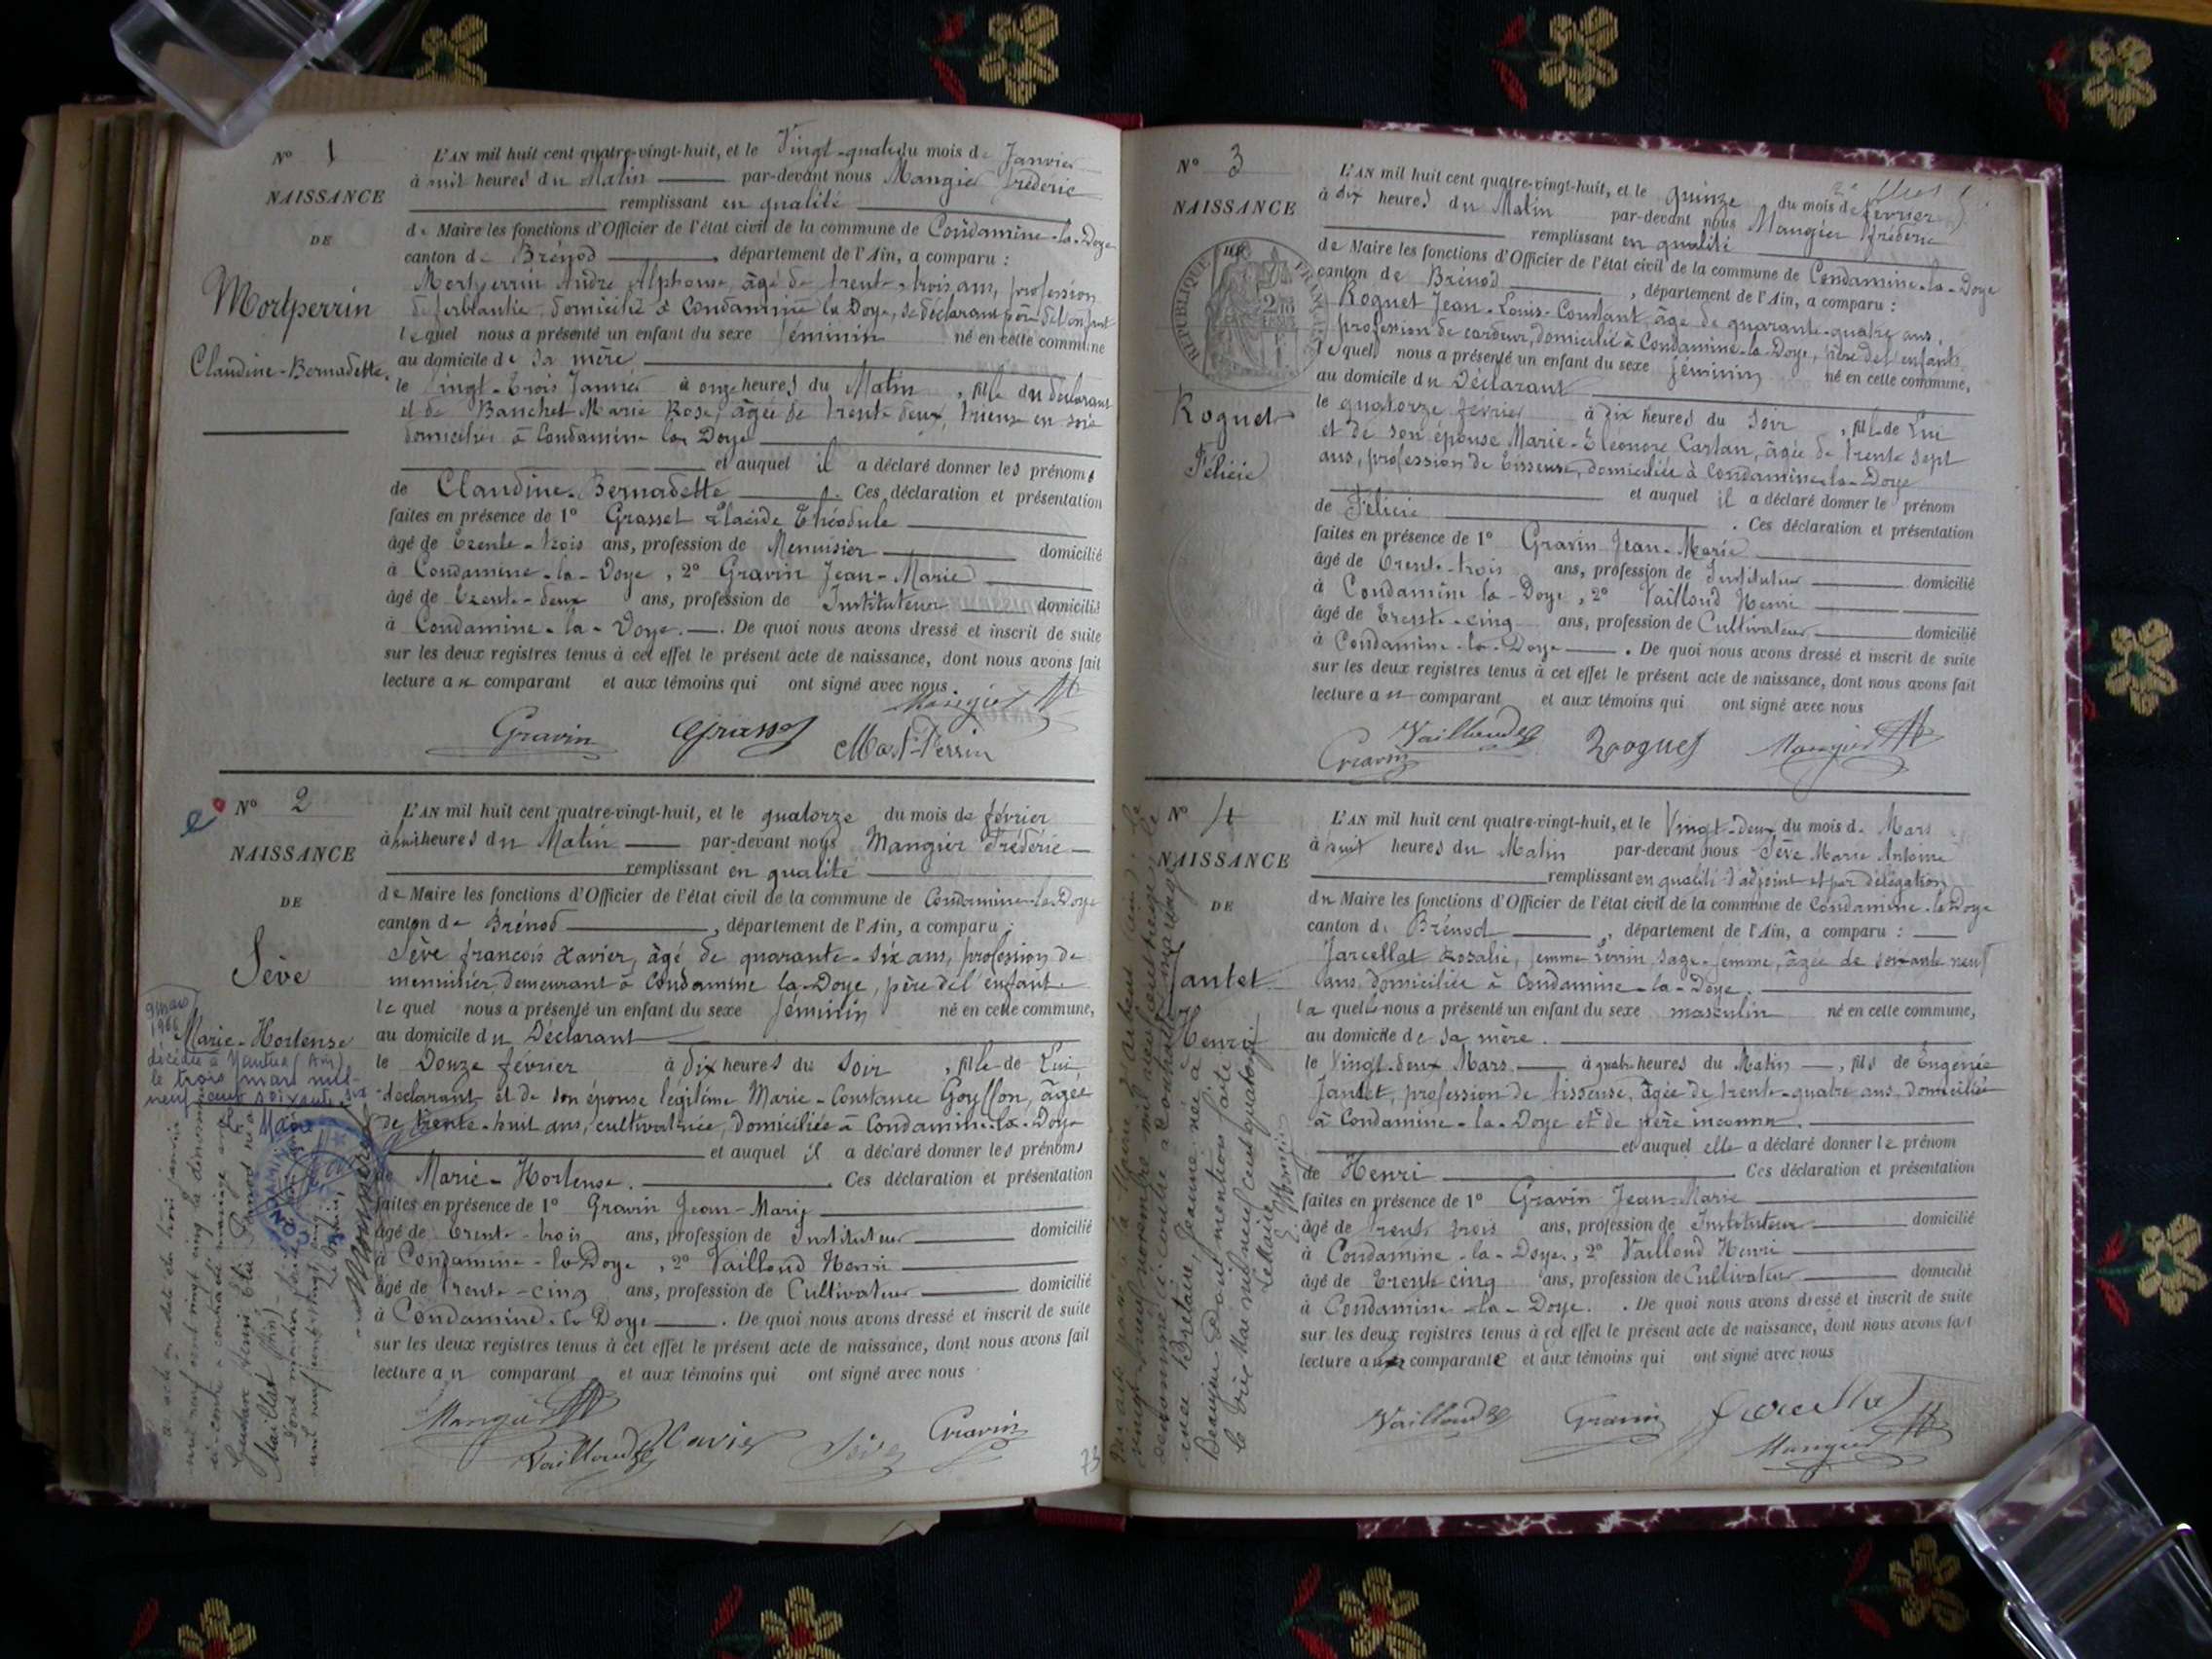 N° 1
NAISSANCE
DE
Mortperrin
Claudine-Bernadette.
L'AN mil huit cent quatre-vingt-huit, et le Vingt-quatre du mois de Janvier
à huit heures du Matin par-devant nous Mangier frédéric
remplissant en qualité
de Maire les fonctions d'Officier de l'état civil de la commune de Condamine-la-Doye
canton de Brénod, département de l'Ain, a comparu :
Mortperrin André Alphonse, âgé de trente-trois ans, profession
de ferblantier, domicilié à Condamine la Doye, se déclarant père de l'enfant
lequel nous a présenté un enfant du sexe féminin né en cette commune
au domicile de sa mère
le Vingt-trois Janvier à onze heures du Matin, fille du déclarant
et de Banchet Marie Rose, âgée de trente deux, en soie
domiciliés à Condamine la Doye
et auquel il a déclaré donner les prénoms
de Claudine-Bernadette. Ces déclaration et présentation
faites en présence de 1° Grasset Placide Théodule
âgé de trente-trois ans, profession de Menuisier domicilié
à Condamine-la-Doye, 2° Gravin Jean-Marie
âgé de trente-deux ans, profession de Instituteur domicilié
à Condamine-la-Doye. De quoi nous avons dressé et inscrit de suite
sur les deux registres tenus à cet effet le présent acte de naissance, dont nous avons fait
lecture au comparant et aux témoins qui ont signé avec nous.
Mangier
Gravin Grasset Mort-Perrin
N° 2
NAISSANCE
DE
Sève
Marie-Hortense
9 mars
1966
décédée à Nantua (Ain)
le trois mars mil-
neuf cent soixante six
Maire
L'AN mil huit cent quatre-vingt-huit, et le quatorze du mois de février
à huit heures du Matin par-devant nous Mangier Frédéric
remplissant en qualité
de Maire les fonctions d'Officier de l'état civil de la commune de Condamine-la-Doye
canton de Brénod, département de l'Ain, a comparu :
Sève françois Xavier, âgé de quarante-six ans, profession de
menuisier, demeurant à Condamine la-Doye, père de l'enfant
lequel nous a présenté un enfant du sexe féminin né en cette commune,
au domicile du Déclarant
le Douze février à dix heures du Soir, fille de Lui
déclarant et de son épouse légitime Marie-Constance Goyffon, âgée
de trente-huit ans, cultivatrice, domiciliée à Condamine-la-Doye
et auquel il a déclaré donner les prénoms
de Marie-Hortense. Ces déclaration et présentation
faites en présence de 1° Gravin Jean-Marie
âgé de trente-trois ans, profession de Instituteur domicilié
à Condamine-la-Doye, 2° Vailloud Henri
âgé de trente-cinq ans, profession de Cultivateur domicilié
à Condamine-la-Doye. De quoi nous avons dressé et inscrit de suite
sur les deux registres tenus à cet effet le présent acte de naissance, dont nous avons fait
lecture au comparant et aux témoins qui ont signé avec nous
Mangier
Vailloud Xavier Sève Gravin
73
N° 3
NAISSANCE
DE
RÉPUBLIQUE FRANÇAISE
Roguet
Félicie
L'AN mil huit cent quatre-vingt-huit, et le quinze du mois de février
à dix heures du Matin par-devant nous Mangier frédéric
remplissant en qualité
de Maire les fonctions d'Officier de l'état civil de la commune de Condamine-la-Doye
canton de Brénod, département de l'Ain, a comparu :
Roguet Jean-Louis-Constant, âgé de quarante-quatre ans,
profession de cardeur, domicilié à Condamine-la-Doye, père de l'enfant
lequel nous a présenté un enfant du sexe féminin né en cette commune,
au domicile du Déclarant
le quatorze février à dix heures du Soir, fille de Lui
et de son épouse Marie-Eléonore Carlan, âgée de trente sept
ans, profession de tisseuse, domiciliée à Condamine-la-Doye
et auquel il a déclaré donner le prénom
de Félicie. Ces déclaration et présentation
faites en présence de 1° Gravin Jean-Marie
âgé de trente-trois ans, profession de Instituteur domicilié
à Condamine la-Doye, 2° Vailloud Henri
âgé de trente-cinq ans, profession de Cultivateur domicilié
à Condamine-la-Doye. De quoi nous avons dressé et inscrit de suite
sur les deux registres tenus à cet effet le présent acte de naissance, dont nous avons fait
lecture au comparant et aux témoins qui ont signé avec nous
Vailloud
Gravin Roguet Mangier
N° 4
NAISSANCE
DE
Jantet
Henri
L'AN mil huit cent quatre-vingt-huit, et le Vingt-deux du mois de Mars
à huit heures du Matin par-devant nous Sève Marie Antoine
remplissant en qualité d'adjoint et par délégation
du Maire les fonctions d'Officier de l'état civil de la commune de Condamine-la-Doye
canton de Brénod, département de l'Ain, a comparu :
Jarcellat Rosalie, femme Perrin, sage-femme, âgée de soixante neuf
ans, domiciliée à Condamine-la-Doye.
laquelle nous a présenté un enfant du sexe masculin né en cette commune,
au domicile de sa mère.
le Vingt-deux Mars à quatre heures du Matin, fils de Eugénie
Jantet, profession de tisseuse, âgée de trente-quatre ans, domiciliée
à Condamine-la-Doye et de père inconnu.
et auquel elle a déclaré donner le prénom
de Henri Ces déclaration et présentation
faites en présence de 1° Gravin Jean-Marie
âgé de trente trois ans, profession de Instituteur domicilié
à Condamine-la-Doye, 2° Vailloud Henri
âgé de trente cinq ans, profession de Cultivateur domicilié
à Condamine-la-Doye. De quoi nous avons dressé et inscrit de suite
sur les deux registres tenus à cet effet le présent acte de naissance, dont nous avons fait
lecture aux comparante et aux témoins qui ont signé avec nous
Vailloud Gravin Jarcellat
Mangier